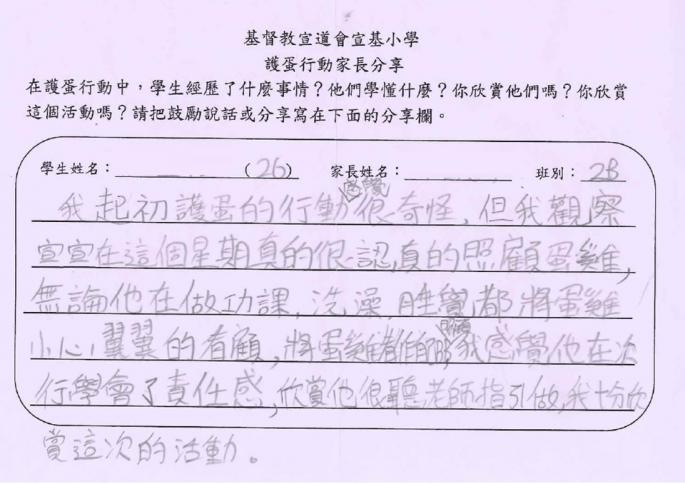 基督教宣道會宣基小學
護蛋行動家長分享
在護蛋行動中，學生經歷了什麼事情？他們學懂什麼？你欣賞他們嗎？你欣賞
這個活動嗎？請把鼓勵說話或分享寫在下面的分享欄。
學生姓名： (26) 家長姓名： 班別：2B
感覺
我起初護蛋的行動很奇怪，但我觀察
宣宣在這個星期真的很認真的照顧蛋雞，
無論他在做功課，洗澡，睡覺都將蛋雞
小心翼翼的看顧，將蛋雞 我感覺他在次
行學會了責任感，欣賞他很聽老師指引做，我十分欣
賞這次的活動。